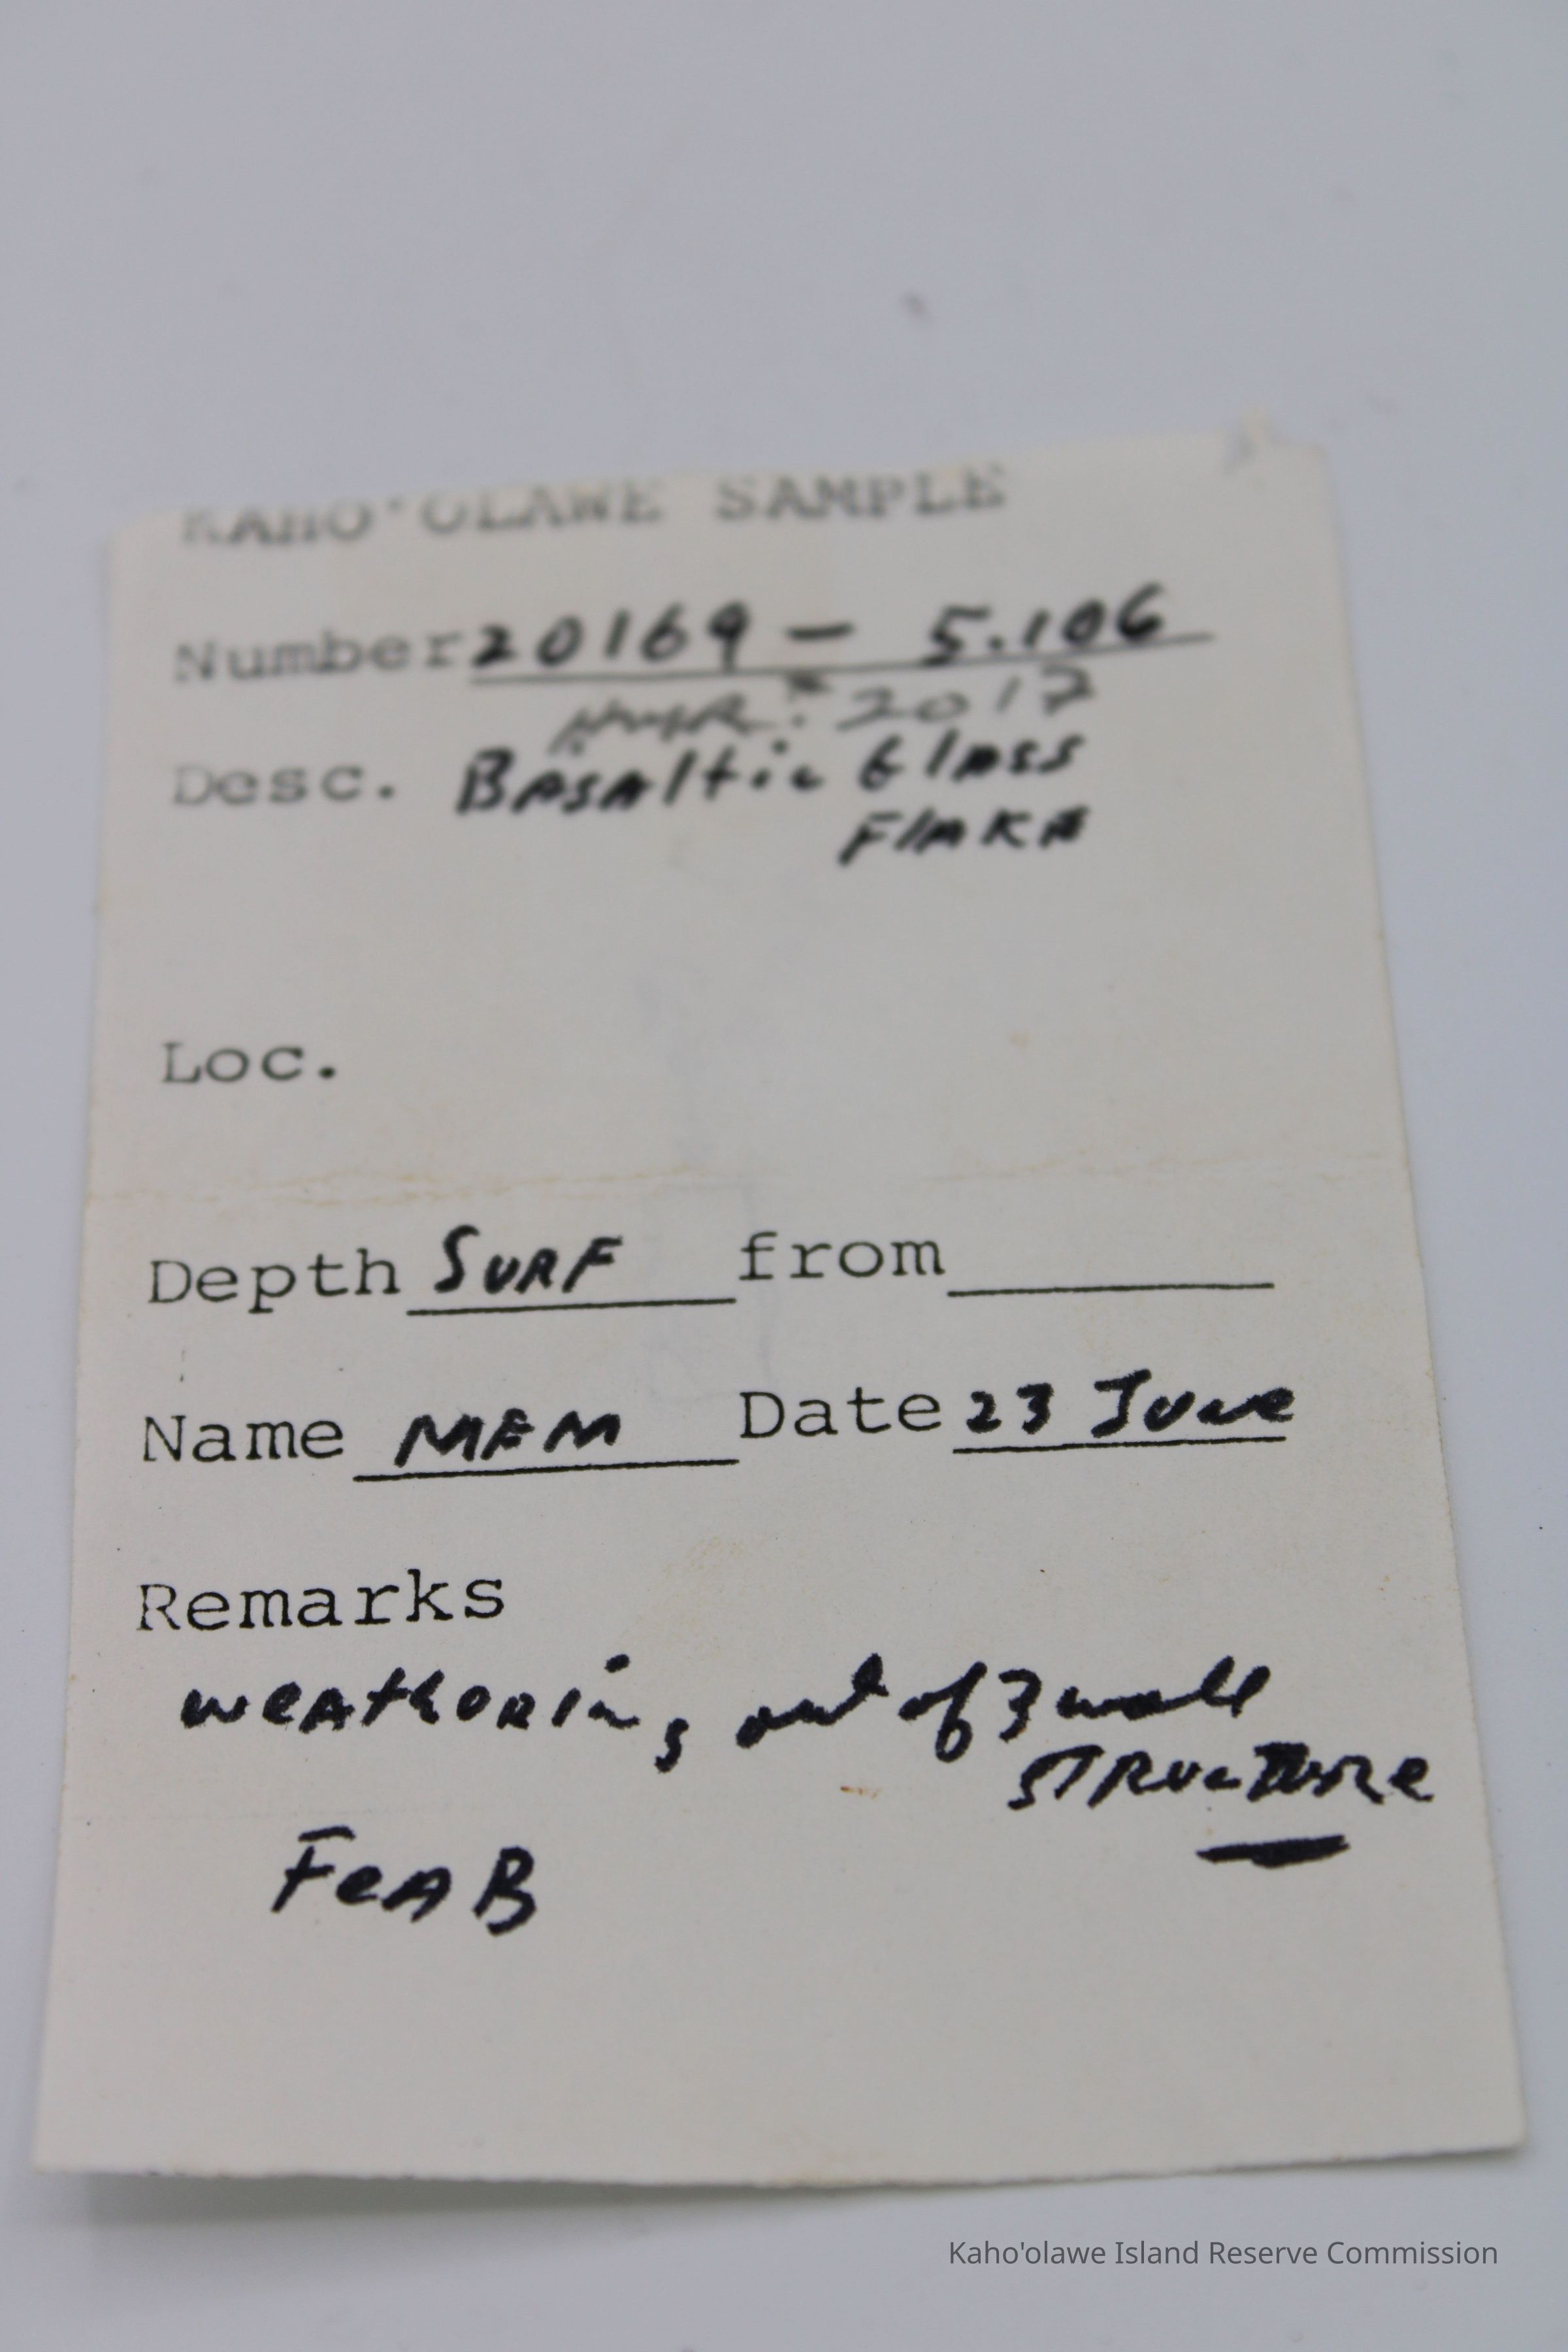 KAHO'OLAWE SAMPLE
Number 20169 - 5.106
2017
Desc. Basaltic Glass
Flake
Loc.
Depth SURF from
Name MFM Date 23 June
Remarks
weathering out of 3 wall
STRUCTURE
Fea B
Kaho'olawe Island Reserve Commission